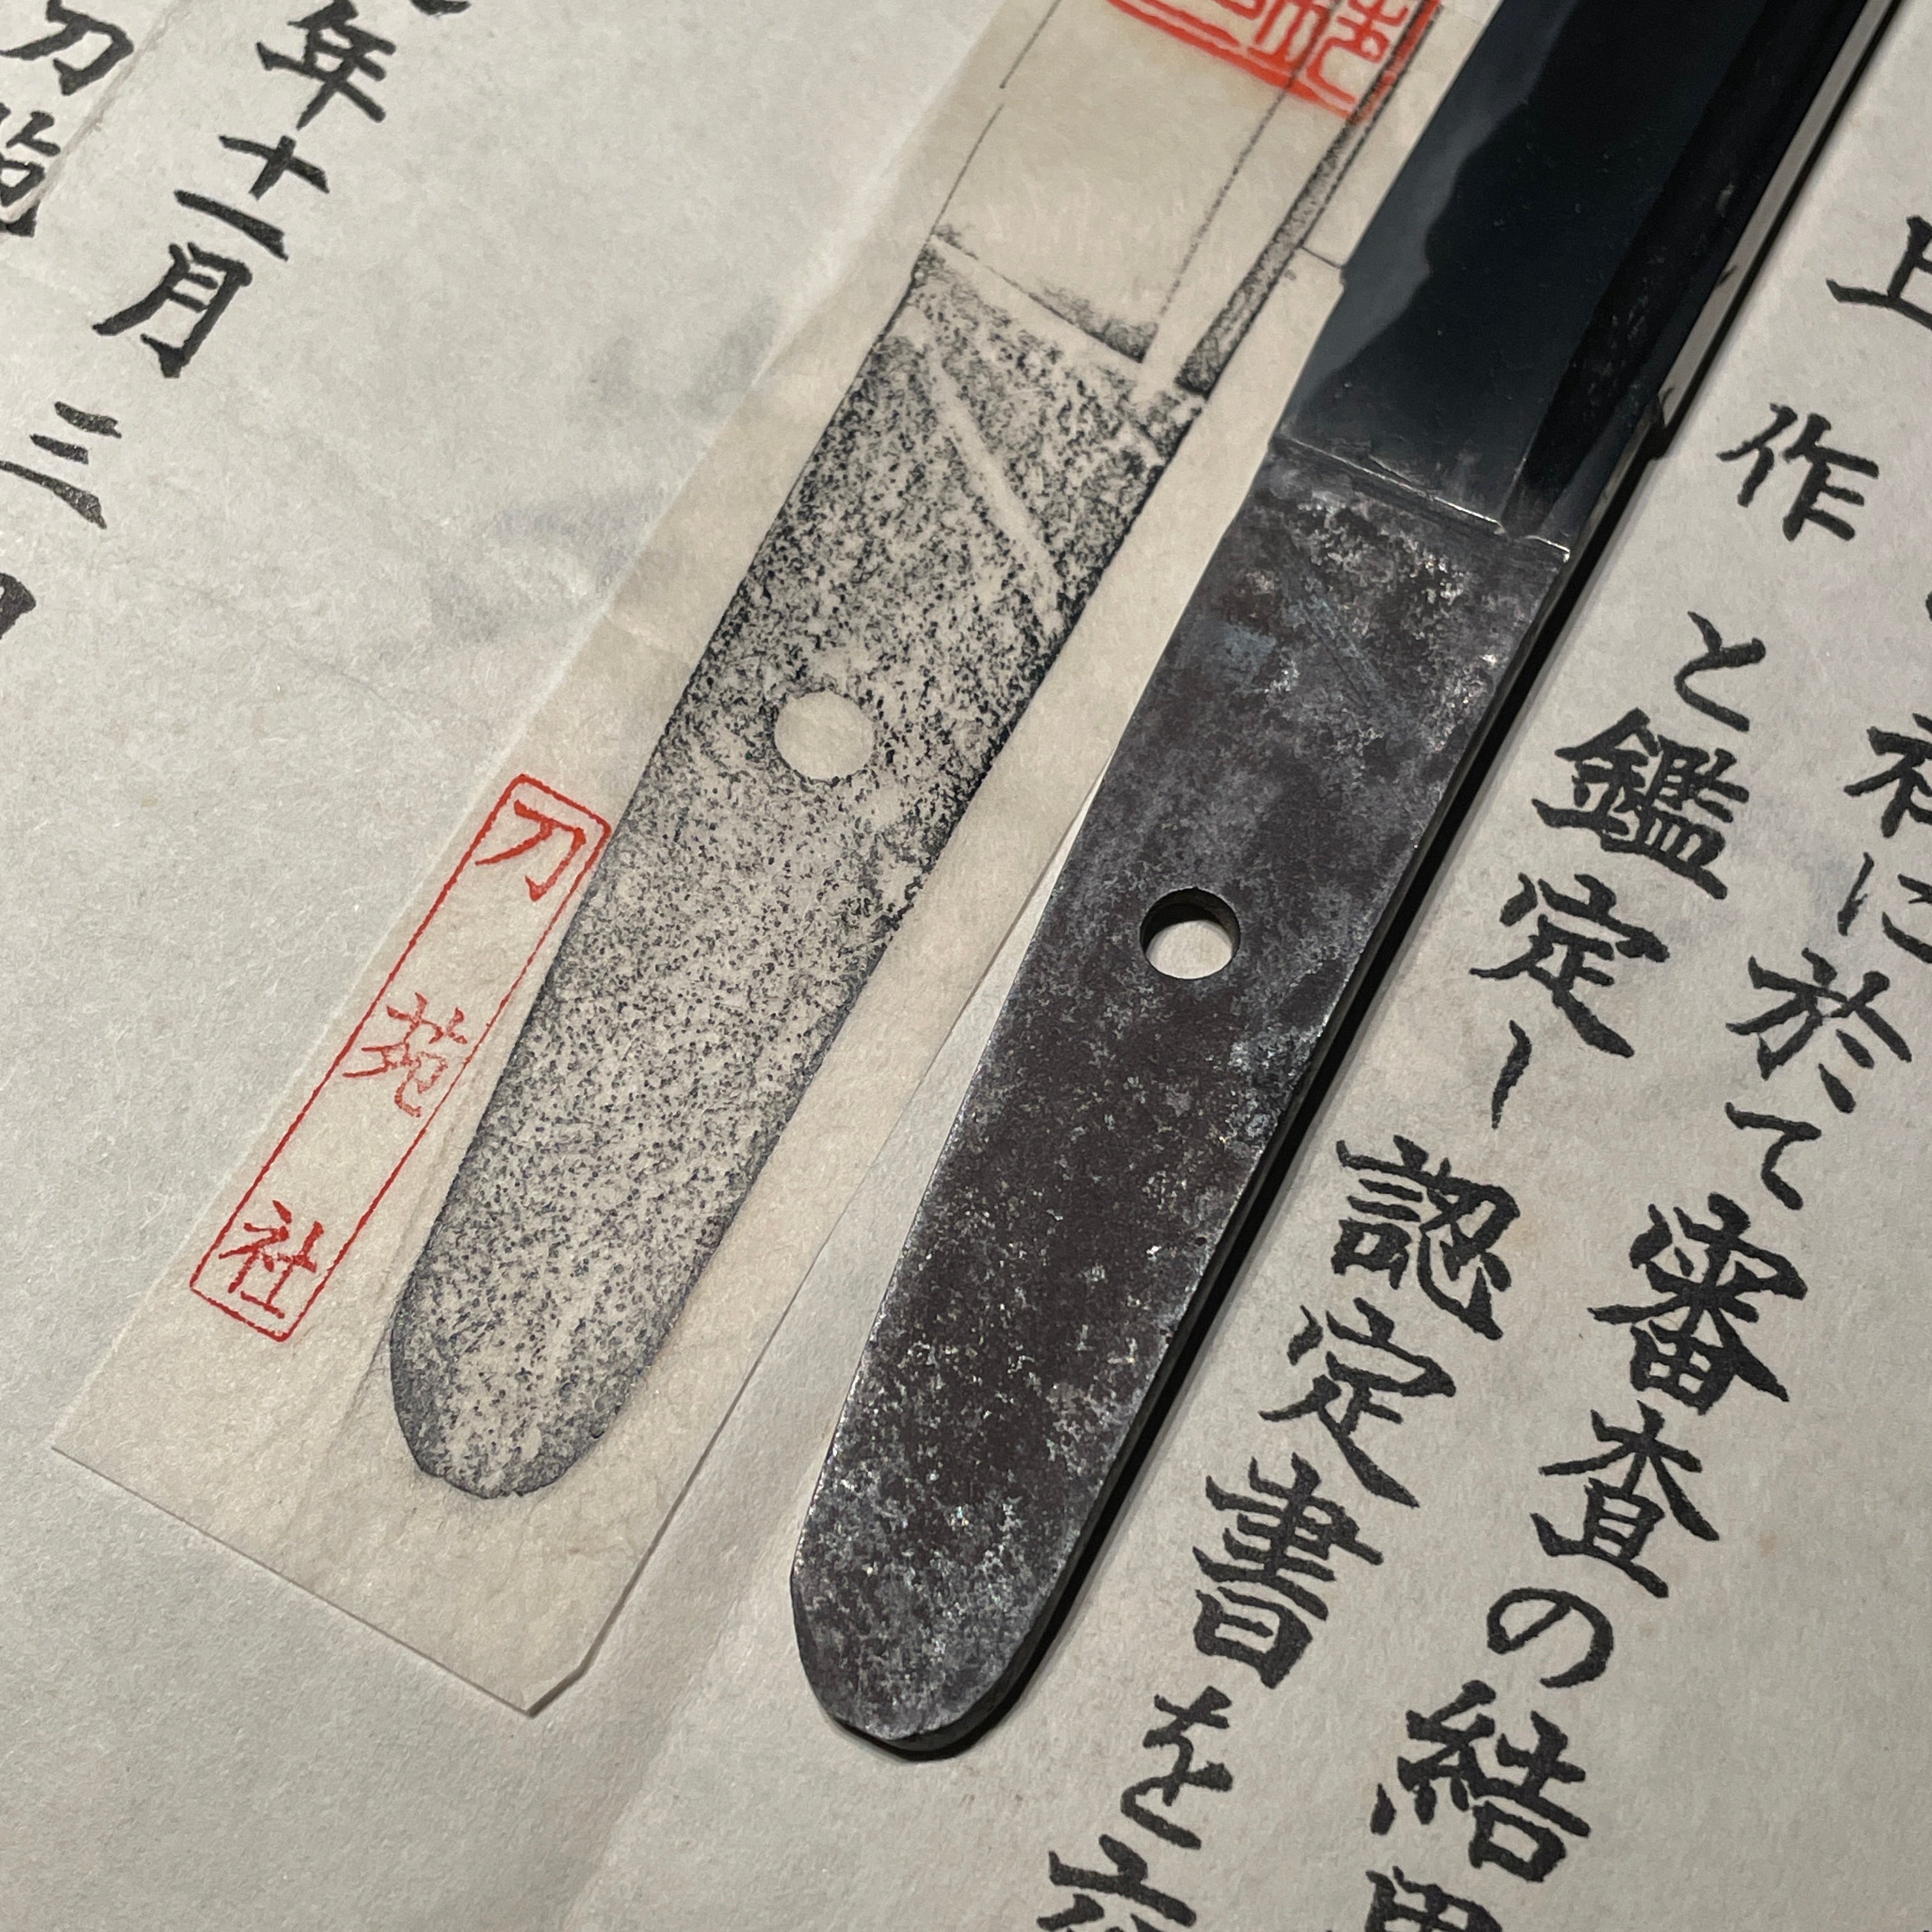 社に於て審査の結果
上作と鑑定し認定書を交
刀苑社
年十一月三日
刀苑